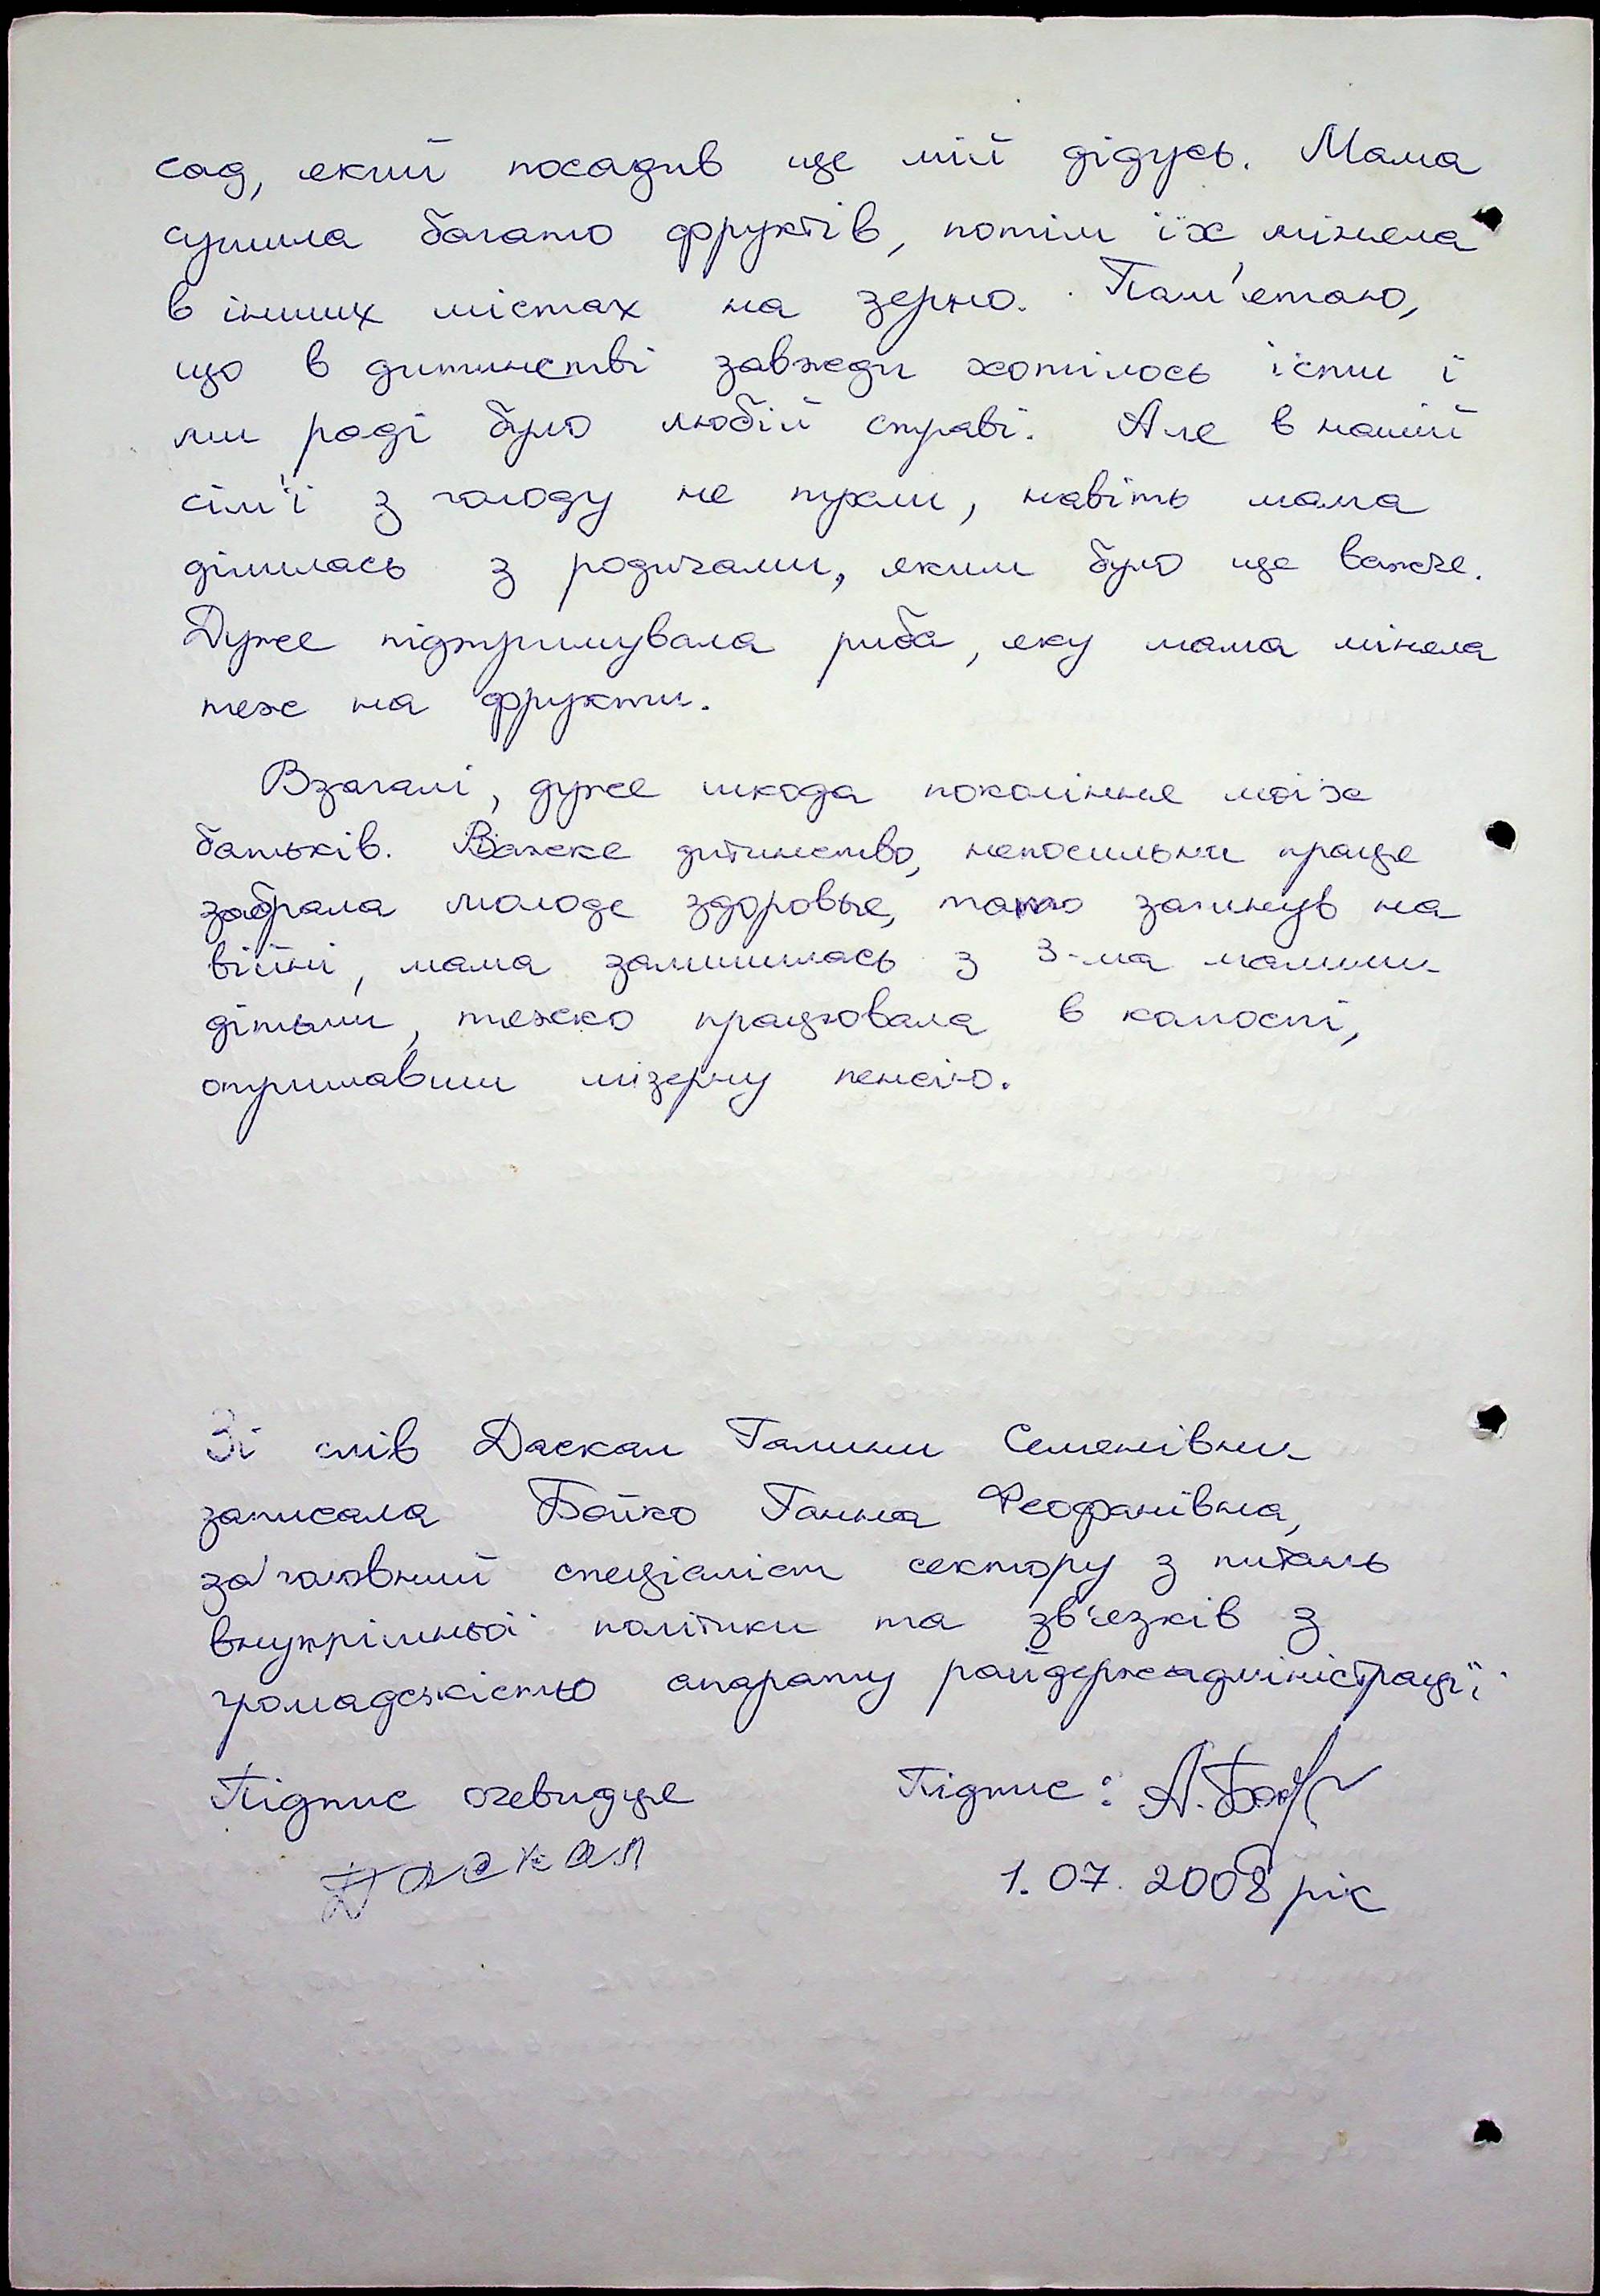 сад, який посадив ще мій дідусь. Мама
сушила багато фруктів, потім їх міняла
в інших містах на зерно. Пам'ятаю,
що в дитинстві завжди хотілось їсти і
ми раді було любій страві. Але в нашій
сім'ї з голоду не пухли, навіть мама
ділилась з родичами, яким було ще важче.
Дуже підтримувала риба, яку мама міняла
теж на фрукти.
Взагалі, дуже шкода покоління моїх
батьків. Важке дитинство, непосильна праця
забрала молоде здоровье, тато загинув на
війні, мама залишилась з 3-ма малими
дітьми, тяжко працювала в колгоспі,
отримавши мізерну пенсію.
Зі слів Даскал Галини Семенівни
записала Бойко Ганна Феофанівна,
головний спеціаліст сектору з питань
внутрішньої політики та зв'язків з
громадськістю апарату райдержадміністрації
Підпис очевидця Підпис: А.Бой
Даскал
1.07.2008 рік